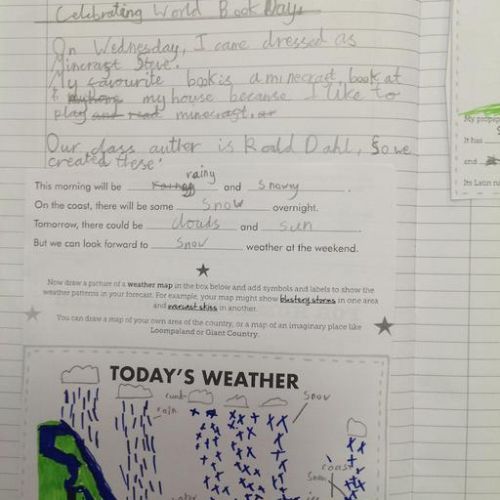 Celebrating World Book Day
On Wednesday, I came dressed as
Mincraft Steve.
My favourite book is a minecraft book at
my house because I like to
play and read minecraft.
Our class auther is Roald Dahl, So we
created these!
rainy
This morning will be and snowy.
On the coast, there will be some snow overnight.
Tomorrow, there could be clouds and sun.
But we can look forward to snow weather at the weekend.
Now draw a picture of a weather map in the box below and add symbols and labels to show the
weather patterns in your forecast. For example, your map might show blustery storms in one area
and in another.
You can draw a map of your own area of the country, or a map of an imaginary place like
Loompaland or Giant Country.
TODAY'S WEATHER
rain
Snow
coast
Snow
My
It has
and
Its Latin